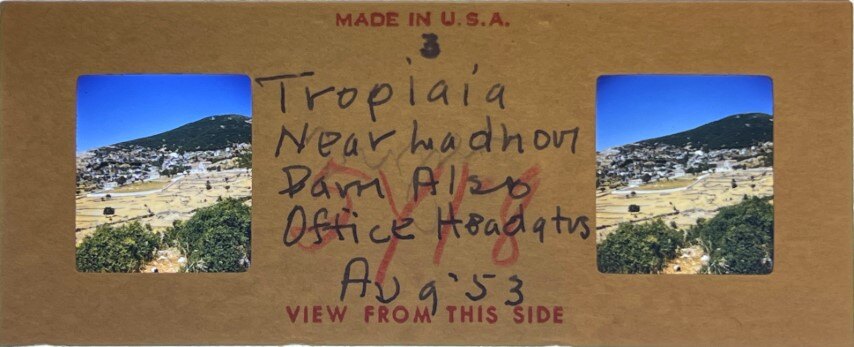 MADE IN U.S.A.
3
Tropiaia
Near Ladhon
Dam Also
Office Headqtrs
Aug '53
VIEW FROM THIS SIDE